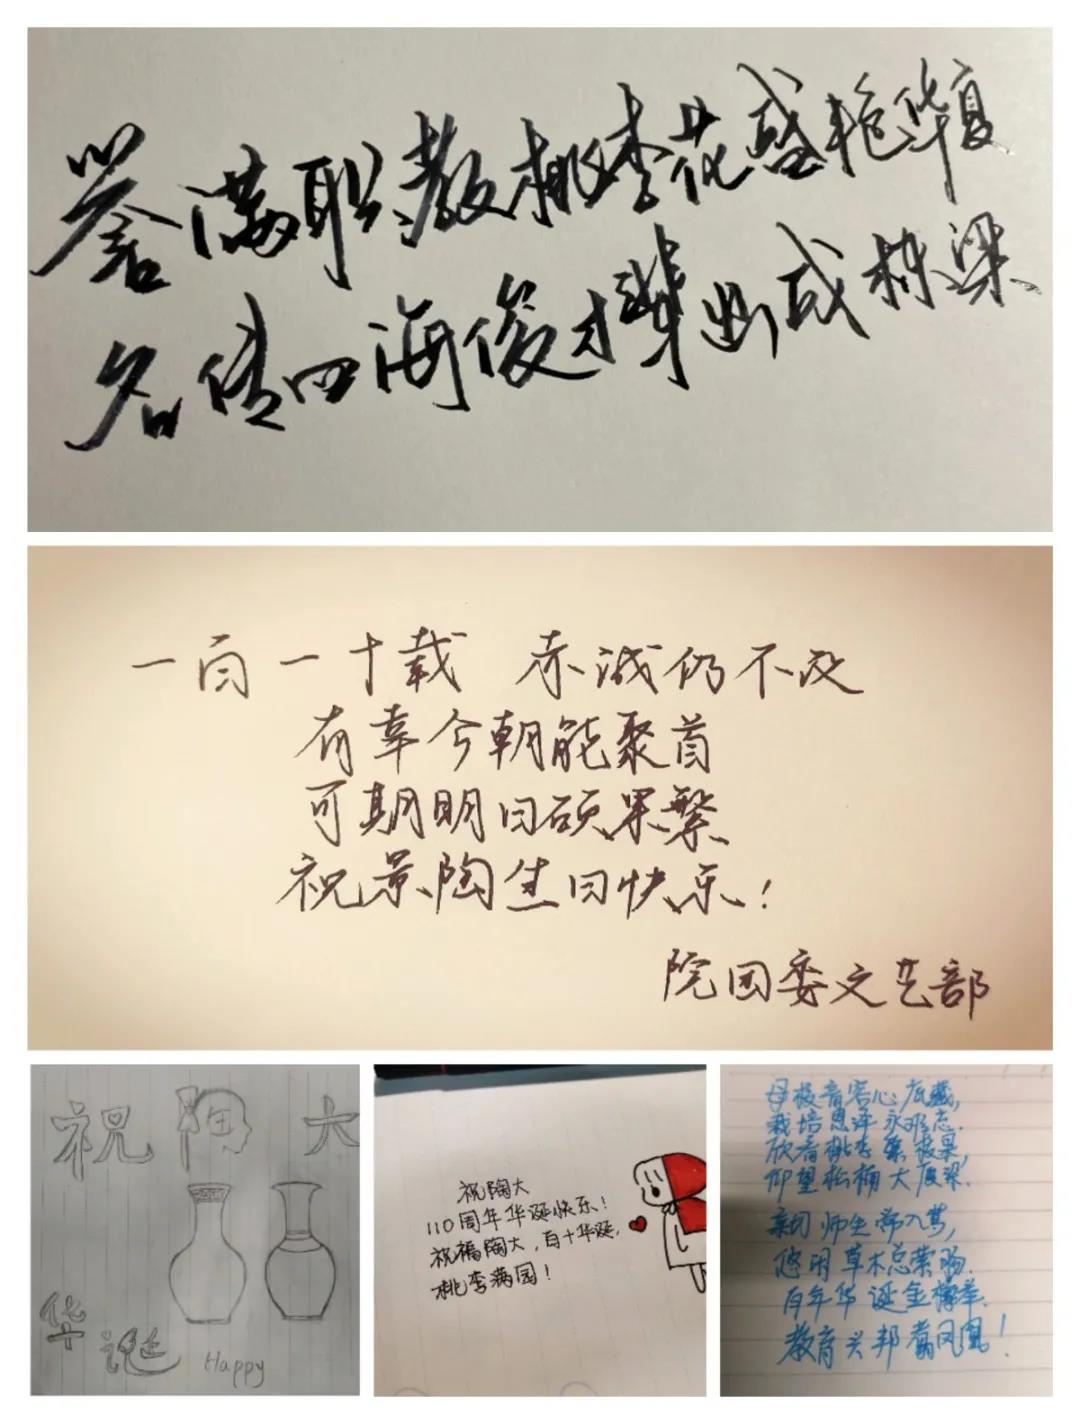 誉满职教桃李花盛艳华夏
名传四海俊才辈出成栋梁
一百一十载 赤诚仍不改
有幸今朝能聚首
可期明日硕果繁
祝景陶生日快乐!
院团委文艺部
祝陶大
华诞
Happy
祝陶大
110周年华诞快乐!
祝福陶大,百十华诞,
桃李满园!
母校音容心底藏,
栽培恩泽永难忘.
欣看桃李繁枝果,
仰望松楠大厦梁.
亲切师生常入梦,
悠闲草木总萦肠.
百年华诞金樽举,
教育兴邦翥凤凰!